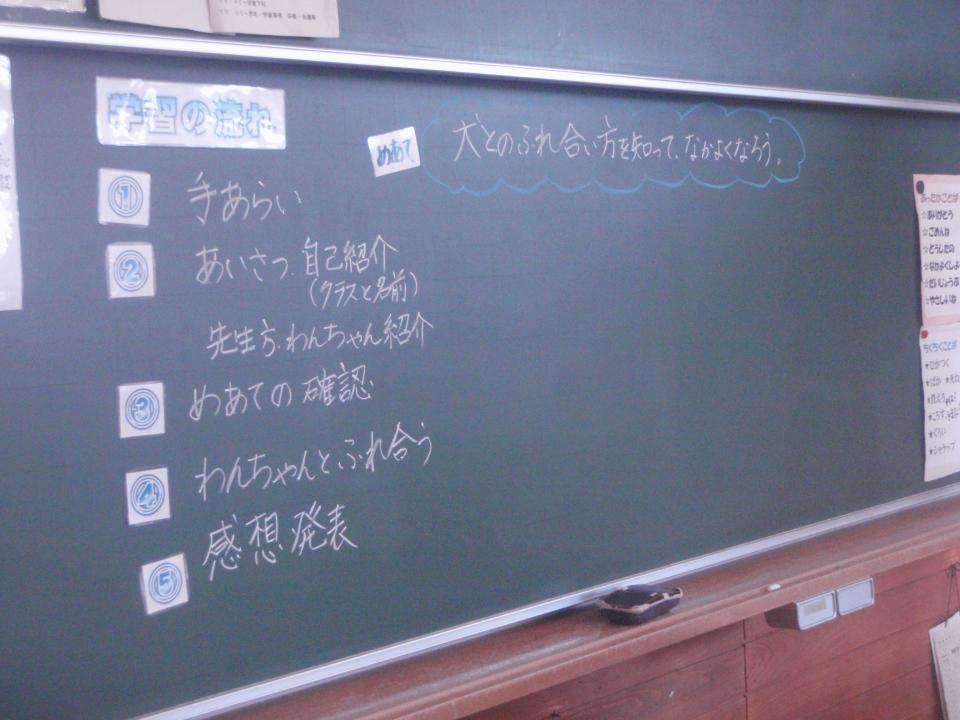 学習の流れ
めあて
犬とのふれ合い方を知って、なかよくなろう。
①
手あらい
②
あいさつ、自己紹介
(クラスと名前)
先生方、わんちゃん紹介
③
めあての確認
④
わんちゃんとふれ合う
⑤
感想発表
あったかことば
☆ありがとう
☆ごめんね
☆どうしたの
☆なかよくしよ
☆だいじょうぶ
☆やさしいね
ちくちくことば
★むかつく
★ばか
★くらい
★シャラップ